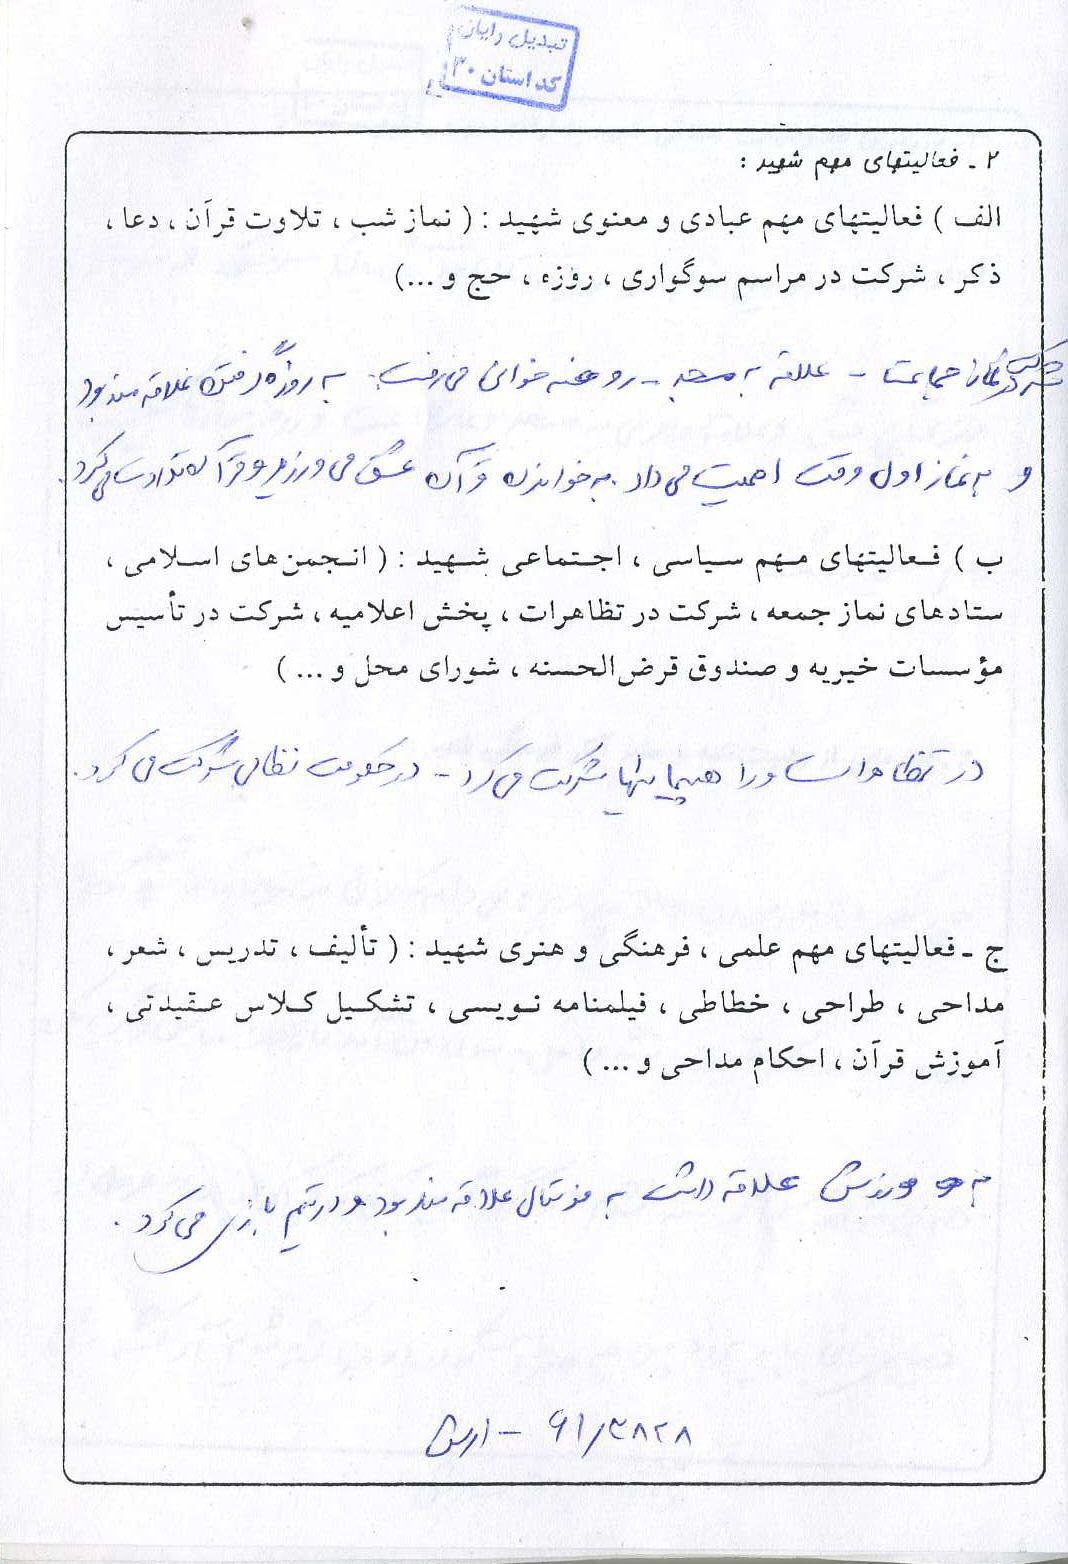 تبدیل رایان
کد استان ۳۰
۲ ـ فعالیتهای مهم شهید :
الف ) فعالیتهای مهم عبادی و معنوی شهید : ( نماز شب ، تلاوت قرآن ، دعا ،
ذکر ، شرکت در مراسم سوگواری ، روزه ، حج و ...)
شرکت در نماز جماعت - علاقه به مسجد - روضه خوانی می رفت. به روزه گرفتن علاقه مند بود
و به نماز اول وقت اهمیت می داد. به خواندن قرآن عشق می ورزید و قرآن تلاوت می کرد.
ب ) فعالیتهای مهم سیاسی ، اجتماعی شهید : ( انجمن‌های اسلامی ،
ستادهای نماز جمعه ، شرکت در تظاهرات ، پخش اعلامیه ، شرکت در تأسیس
مؤسسات خیریه و صندوق قرض‌الحسنه ، شورای محل و ... )
در تظاهرات و راهپیمایی‌ها شرکت می کرد - در حکومت نظامی شرکت می کرد.
ج ـ فعالیتهای مهم علمی ، فرهنگی و هنری شهید : ( تألیف ، تدریس ، شعر ،
مداحی ، طراحی ، خطاطی ، فیلمنامه نویسی ، تشکیل کلاس عقیدتی ،
آموزش قرآن ، احکام مداحی و ... )
به ورزش علاقه داشت به فوتبال علاقه مند بود و در تیم بازی می کرد.
۶۱/۳۸۲۸ - ارتش